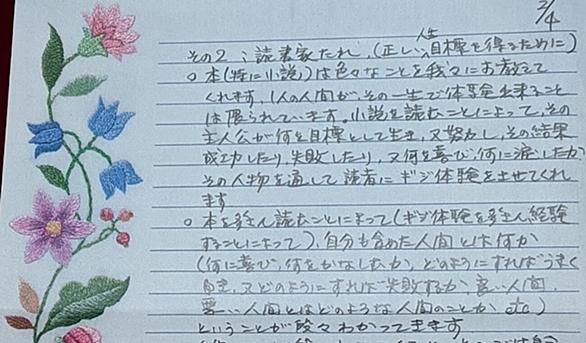 2/4
その2；読書家たれ、(正しい人生目標を得るために)
○本(特に小説)は色々なことを我々にお教えて
くれます、1人の人間が、その一生で体験出来ること
は限られています。小説を読むことによって、その
主人公が何を目標として生き、又努力し、その結果
成功したり、失敗したり、又何を喜び、何に涙したか
その人物を通して読者にギジ体験をさせてくれ
ます
○本を多く読むことによって(ギジ体験を多く経験
することによって)、自分も含めた人間とは何か
(何に喜び、何をかなしむか、どのようにすればうまく
、又どのようにすれば失敗するか、良い人間、
悪い人間とはどのような人間のことか etc)
ということが段々わかってきます